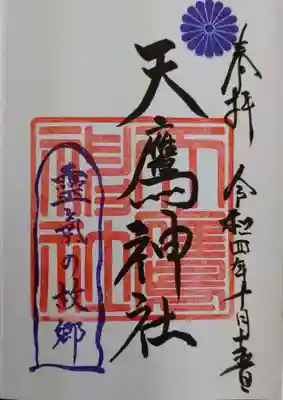 奉拝
令和四年十月十五日
天鷹神社
天鷹神社
霊気の故郷